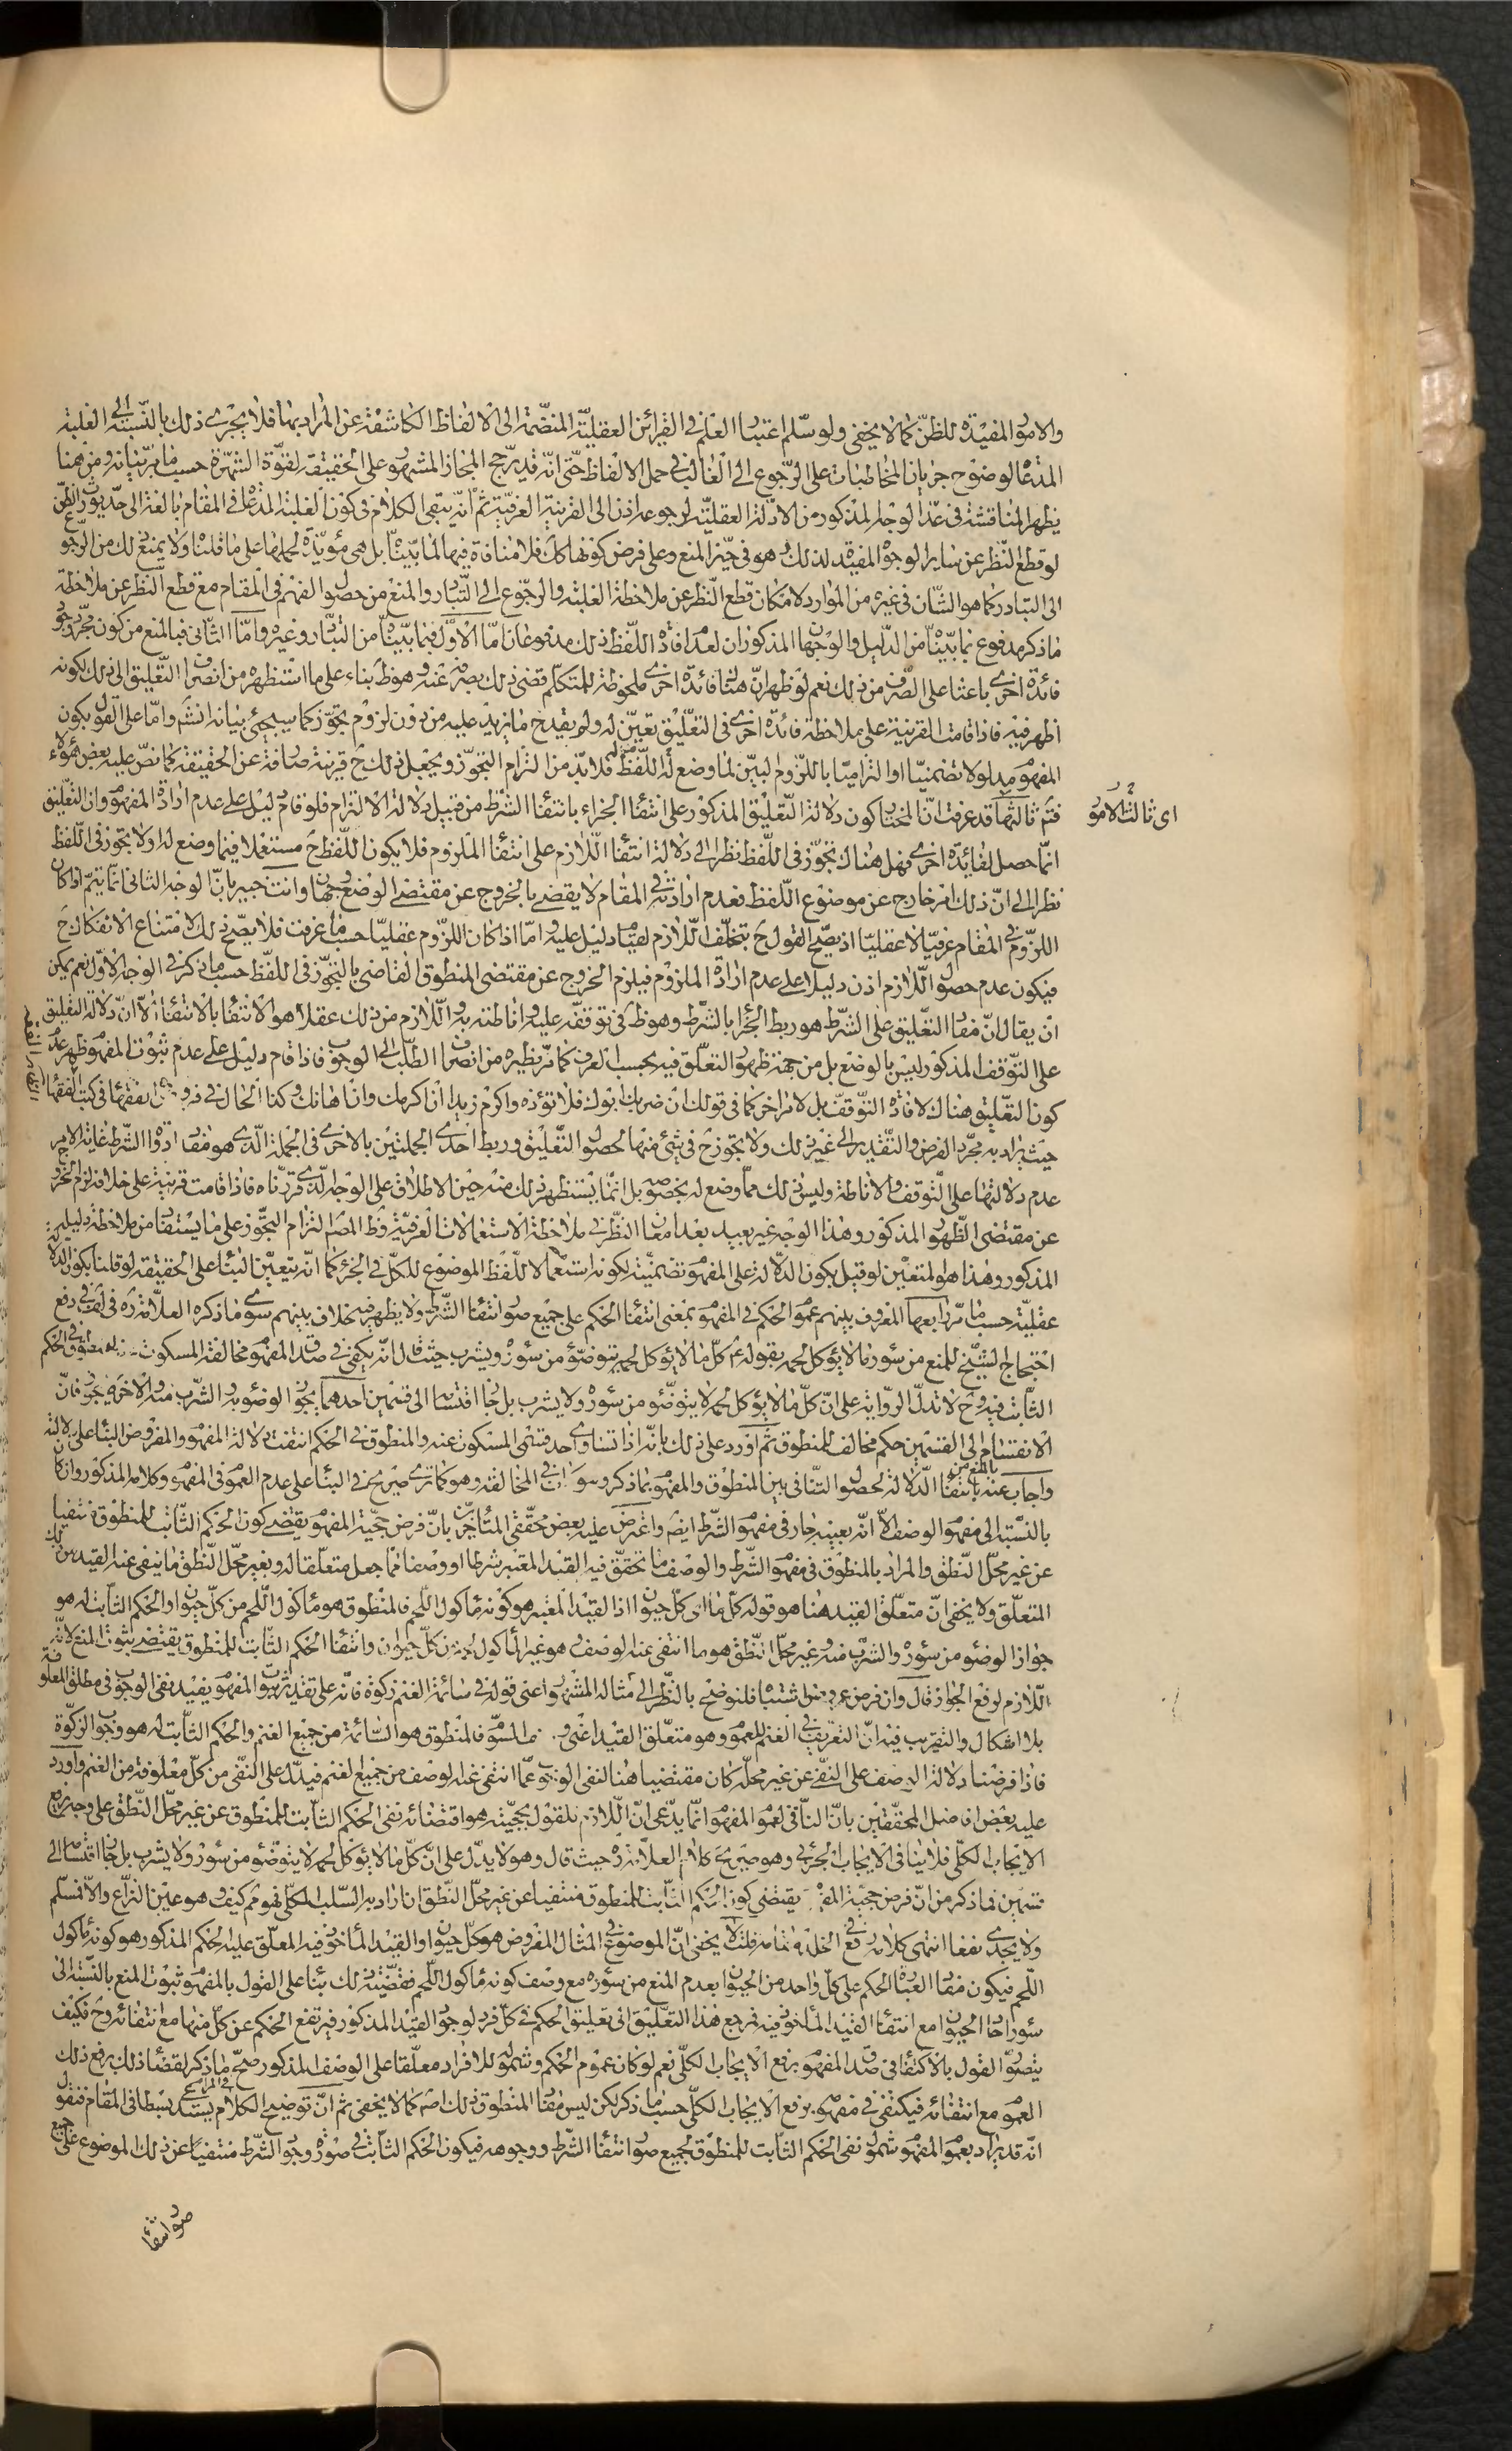 والامور المفيدة للظنّ كما لا يخفى ولو سلّم اعتبار العلم في القرائن العقليّة المنضّمة الى الالفاظ الكاشفة عن المراد بها فلا يجرى ذلك بالنسبة الى الغلبة
المدعاة لوضوح جريان المخاطبات على الرّجوع الى الغالب في حمل الالفاظ حتّى انّه قد يرجّح المجاز المشهور على الحقيقة لقوّة الشهرة حسب ما مرّ بيانه ومن هنا
يظهر المناقشة في عدّ الوجه المذكور من الادّلة العقليّة لرجوعه اذن الى القرينة العرفيّة ثمّ انّه يبقى الكلام في كون الغلبة المدعاة في المقام بالغة الى حدّ يورث الظنّ
لو قطع النّظر عن ساير الوجوه المفيدة لذلك وهو في حيّز المنع وعلى فرض كونها كك فلا منافاة فيها لما بيّنّا بل هي مؤيّدة لحملها على ما قلنا ولا يمنع ذلك من الرّجوع
الى التبادر كما هو الشّان في غيره من الموارد لامكان قطع النّظر عن ملاحظة الغلبة والرّجوع الى التّبادر والمنع من حصول الفهم في المقام مع قطع النظر عن ملاحظة
ما ذكر مدفوع بما بيّنّا من الدّليل والوجهان المذكوران لعدم افادة اللّفظ ذلك مدفوعان امّا الاوّل فبما بيّنّا من التبادر وغيره وامّا الثّاني فبالمنع من كون مجرّد وجود
فائدة اخرى باعثا على الصّرف من ذلك نعم لو ظهر انّ هناك فائدة اخرى ملحوظة للمتكلّم قضى ذلك بصرفه عنه وهو ظ بناء على ما استظهره من انصراف التّعليق الى ذلك لكونه
اظهر فيه فاذا قامت القرينة على ملاحظة فائدة اخرى في التعّليق تعيّن له ولم يقدح ما يزيد عليه من دون لزوم تجوّز كما سيجئ بيانه انشم وامّا على القول بكون
المفهوم مدلولا تضمنيّا او التزاميّا باللّزوم البيّن لما وضع له اللّفظ فلا بدّ من التزام التجوّز ويجعل ذلك ح قرينة صارفة عن الحقيقة كما نصّ عليه بعض هؤلاء
اى ثالث الامور
فثم ثالثها قد عرفت انّ المختار كون دلالة التّعليق المذكور على انتفاء الجزاء بانتفاء الشرط من قبيل دلالة الالتزام فلو قام دليل على عدم ارادة المفهوم وان التّعليق
انّما حصل لفائدة اخرى فهل هناك تجوّز في اللّفظ نظرا الى دلالة انتفاء اللّازم على انتفاء الملزوم فلا يكون اللّفظ ح مستعملا فيما وضع له او لا تجوّز في اللّفظ
نظرا الى انّ ذلك امر خارج عن موضوع اللّفظ فعدم ارادته في المقام لا يقضى بالخروج عن مقتضى الوضع وجهان وانت خبير بانّ الوجه الثاني انّما يتمّ اذا كان
اللزّوم في المقام عرفيّا لا عقليّا اذ يصّح القول ح بتخلّف اللّازم لقيام دليل عليه وامّا اذا كان اللزّوم عقليّا حسب ما عرفت فلا يصّح ذلك لامتناع الانفكاك ح
فيكون عدم حصول اللّازم اذن دليلا على عدم ارادة الملزوم فيلزم الخروج عن مقتضى المنطوق القاضى بالتجوّز في اللّفظ حسب ما ذكر في الوجه الاوّل نعم يمكن
ان يقال انّ مفاد التعّليق على الشّرط هو ربط الجزاء بالشّرط وهو ظ في توقفّه عليه واناطته به واللّازم من ذلك عقلا هو الانتفاء بالانتفاء الّا انّ دلالة التعليق
على التّوقف المذكور ليس بالوضع بل من جهة ظهور التعلّق فيه بحسب العرف كما مرّ نظيره من انصراف الطّلب الى الوجوب فاذا قام دليل على عدم ثبوت المفهوم ظهر عدم
كون التعّليق هناك لافادة التّوقفّ بل لامر اخر كما في قولك ان ضربك ابوك فلا تؤذه واكرم زيدا ان اكرمك وان اهانك وكذا الحال في فروض يفرضها في كتب الفقهاء
حيث يراد به مجّرد الفرض والتّقدير الى غير ذلك ولا تجوّز ح في شئ منها لحصول التّعليق وربط احدى الجملتين بالاخرى في الجملة الّذى هو مفاد ادوات الشّرط غاية الامر
عدم دلالتها على التّوقف والاناطة وليس ذلك ممّا وضع له بخصوصه بل انّما يستظهر ذلك منه حين الاطلاق على الوجه الّذى قرّرناه فاذا قامت قرينة على خلافه لزم الخروج
عن مقتضى الظّهور المذكور وهذا الوجه غير بعيد بعد امعان النظّر في ملاحظة الاستعمالات العرفيّة وظ المصّ التزام التجّوز على ما يستفاد من ملاحظة دليله
المذكور وهذا هو المتعيّن لو قيل بكون الدّلالة على المفهوم تضمنيّة لكونه استعمالا للّفظ الموضوع للكلّ في الجزء كما انّه يتعيّن البناء على الحقيقة لو قلنا بكون الدلالة
عقليّة حسب ما مرّ رابعها المعروف بينهم عموم الحكم في المفهوم بمعنى انتفاء الحكم على جميع صور انتفاء الشّرط ولا يظهر فيه خلاف بينهم سوى ما ذكره العلّامة ره في لف في دفع
احتجاج الشيّخ للمنع من سؤر ما لا يؤكل لحمه بقوله ع كلّ ما لا يؤكل لحمه تتوضّؤ من سؤره ويشرب حيث قال انّه يكفى في صدق المفهوم مخالفة المسكوت للمنطوق في الحكم
الثّابت فيه وح لا تدلّ الرّواية على انّ كلّ ما لا يؤكل لحمه لا يتوضّؤ من سؤره ولا يشرب بل جاز اقتسامه الى قسمين احدهما يجوز الوضوء به والشّرب منه والاخر لا يجوز فانّ
الانقسام الى القسمين حكم مخالف للمنطوق ثمّ اورد على ذلك بانّه اذا تساوى احد قسمى المسكوت عنه والمنطوق في الحكم انتفت دلالة المفهوم والمفروض البناء على دلالته
واجاب عنه بالمنع من انتفاء الدّلالة لحصول التنّافى بين المنطوق والمفهوم بما ذكر وهو كما ترى صريح في البناء على عدم العموم في المفهوم وكلامه المذكور وان كان
بالنّسبة الى مفهوم الوصف الّا انّه بعينه جار في مفهوم الشّرط ايضم واعترض عليه بعض محقّقى المتأخرين بانّ فرض حجّية المفهوم يقتضى كون الحكم الثّابت للمنطوق منتفيا
عن غير محلّ النّطق والمراد بالمنطوق في مفهوم الشّرط والوصف ما تحقّق فيه القيد المعتبر شرطا او وصفا ممّا جعل متعلّقا له وبغير محلّ النّطق ما ينفى عنه القيد من ذلك
المتعلّق ولا يخفى انّ متعلّق القيد هنا هو قوله كل ما اى كلّ حيوان اذا القيد المعتبر هو كونه مأكول اللّحم فالمنطوق هو مأكول اللّحم من كلّ حيوان والحكم الثّابت له هو
جواز الوضوء من سؤره والشّرب منه وغير محلّ النّطق هو ما انتفى عنه الوصف وهو غير المأكول من كلّ حيوان وانتفاء الحكم الثّابت للمنطوق يقتضى ثبوت المنع لانّه
اللّازم لرفع الجواز قال وان فرض عروض اشتباه فلنوضح بالنّظر الى مثاله المشهور اعنى قوله في سائمة الغنم زكوة فانّه على تقدير ثبوت المفهوم يفيد نفى الوجوب في مطلق المعلوفة
بلا اشكال والتقريب فيه انّ التعريف في الغنم للعموم وهو متعلّق القيد اعنى وصف السّوم فالمنطوق هو السّائمة من جميع الغنم والحكم الثّابت له هو وجوب الزكوة
فاذا فرضنا دلالة الوصف على النّفى عن غير محلّه كان مقتضيا هنا لنفى الوجوب عمّا انتفى عنه الوصف من جميع الغنم فيدّل على النّفى من كلّ معلوفة من الغنم واورد
عليه بعض افاضل المحققّين بانّ النّافى لعموم المفهوم انّما يدّعى انّ اللّازم للقول بحجّيته هو اقتضائه نفى الحكم الثّابت للمنطوق عن غير محلّ النّطق على وجه يرفع
الايجاب الكلّى فلا ينافى الايجاب الجزئى وهو صريح كلام العلّامة ره حيث قال وهو لا يدّل على انّ كلّ ما لا يؤكل لحمه لا يتوضّؤ من سؤره ولا يشرب بل جاز اقتسامه الى
قسمين فما ذكر من انّ فرض حجيّة المفهوم يقتضى كون الحكم الثّابت للمنطوق منتفيا عن غير محلّ النّطق ان اراد به السّلب الكلّى فهو ثم كيف وهو عين النّزاع والّا فمسلّم
ولا يجدى نفعا انتهى كلامه رفع في الخلد مقامه قلت لا يخفى انّ الموضوع في المثال المفروض هو كلّ حيوان والقيد المأخوذ فيه المعلّق عليه الحكم المذكور هو كونه مأكول
اللّحم فيكون مفاد العبارة الحكم على كلّ واحد من الحيوان بعدم المنع من سؤره مع وصف كونه مأكول اللّحم فقضيّة ذلك بناء على القول بالمفهوم ثبوت المنع بالنّسبة الى
سؤر احاد الحيوان مع انتفاء القيد المأخوذ فيه فمرجع هذا التّعليق الى تعليق الحكم في كلّ فرد لوجود القيد المذكور فيرتفع الحكم عن كلّ منها مع انتفائه وح فكيف
يتصوّر القول بالاكتفاء في صدق المفهوم برفع الايجاب الكلّى نعم لو كان عموم الحكم وشموله للافراد معلّقا على الوصف المذكور صحّ ما ذكر لقضاء ذلك برفع ذلك
العموم مع انتفائه فيكتفى في مفهومه برفع الايجاب الكلّى حسب ما ذكر لكن ليس مفاد المنطوق ذلك اصّم كما لا يخفى ثم انّ توضيح الكلام في المرام يستدعى بسطا في المقام فنقول
انّه قد يراد بعموم المفهوم شمول نفى الحكم الثّابت للمنطوق لجميع صور انتفاء الشّرط ووجوهه فيكون الحكم الثّابت في صورة وجود الشّرط منتفيا عن ذلك الموضوع على جميع
صور انتفاء